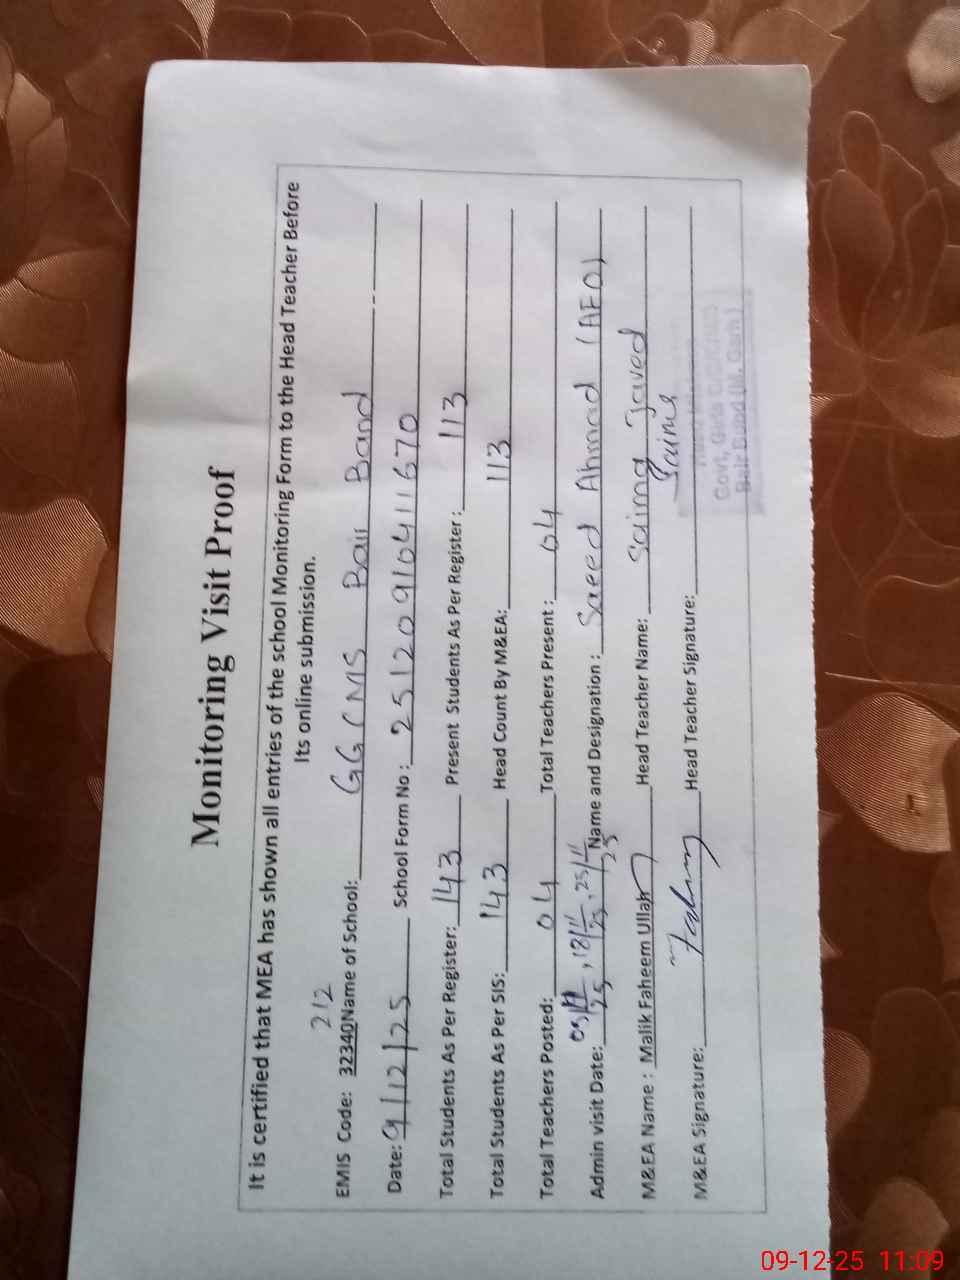 Monitoring Visit Proof
It is certified that MEA has shown all entries of the school Monitoring Form to the Head Teacher Before
Its online submission.
EMIS Code: 32340212 Name of School: GGCMS Bair Band
Date: 9/12/25 School Form No: 2512091041670
Total Students As Per Register: 143 Present Students As Per Register: 113
Total Students As Per SIS: 143 Head Count By M&EA: 113
Total Teachers Posted: 04 Total Teachers Present: 04
Admin visit Date: 18/11/25, 25/11/25 Name and Designation: Saeed Ahmad (AEO)
M&EA Name: Malik Faheem Ullah Head Teacher Name: Saima Javed
M&EA Signature: Fahim Head Teacher Signature: Saima
Govt, Girls
Bair Bund (M. Garh)
09-12-25 11:09